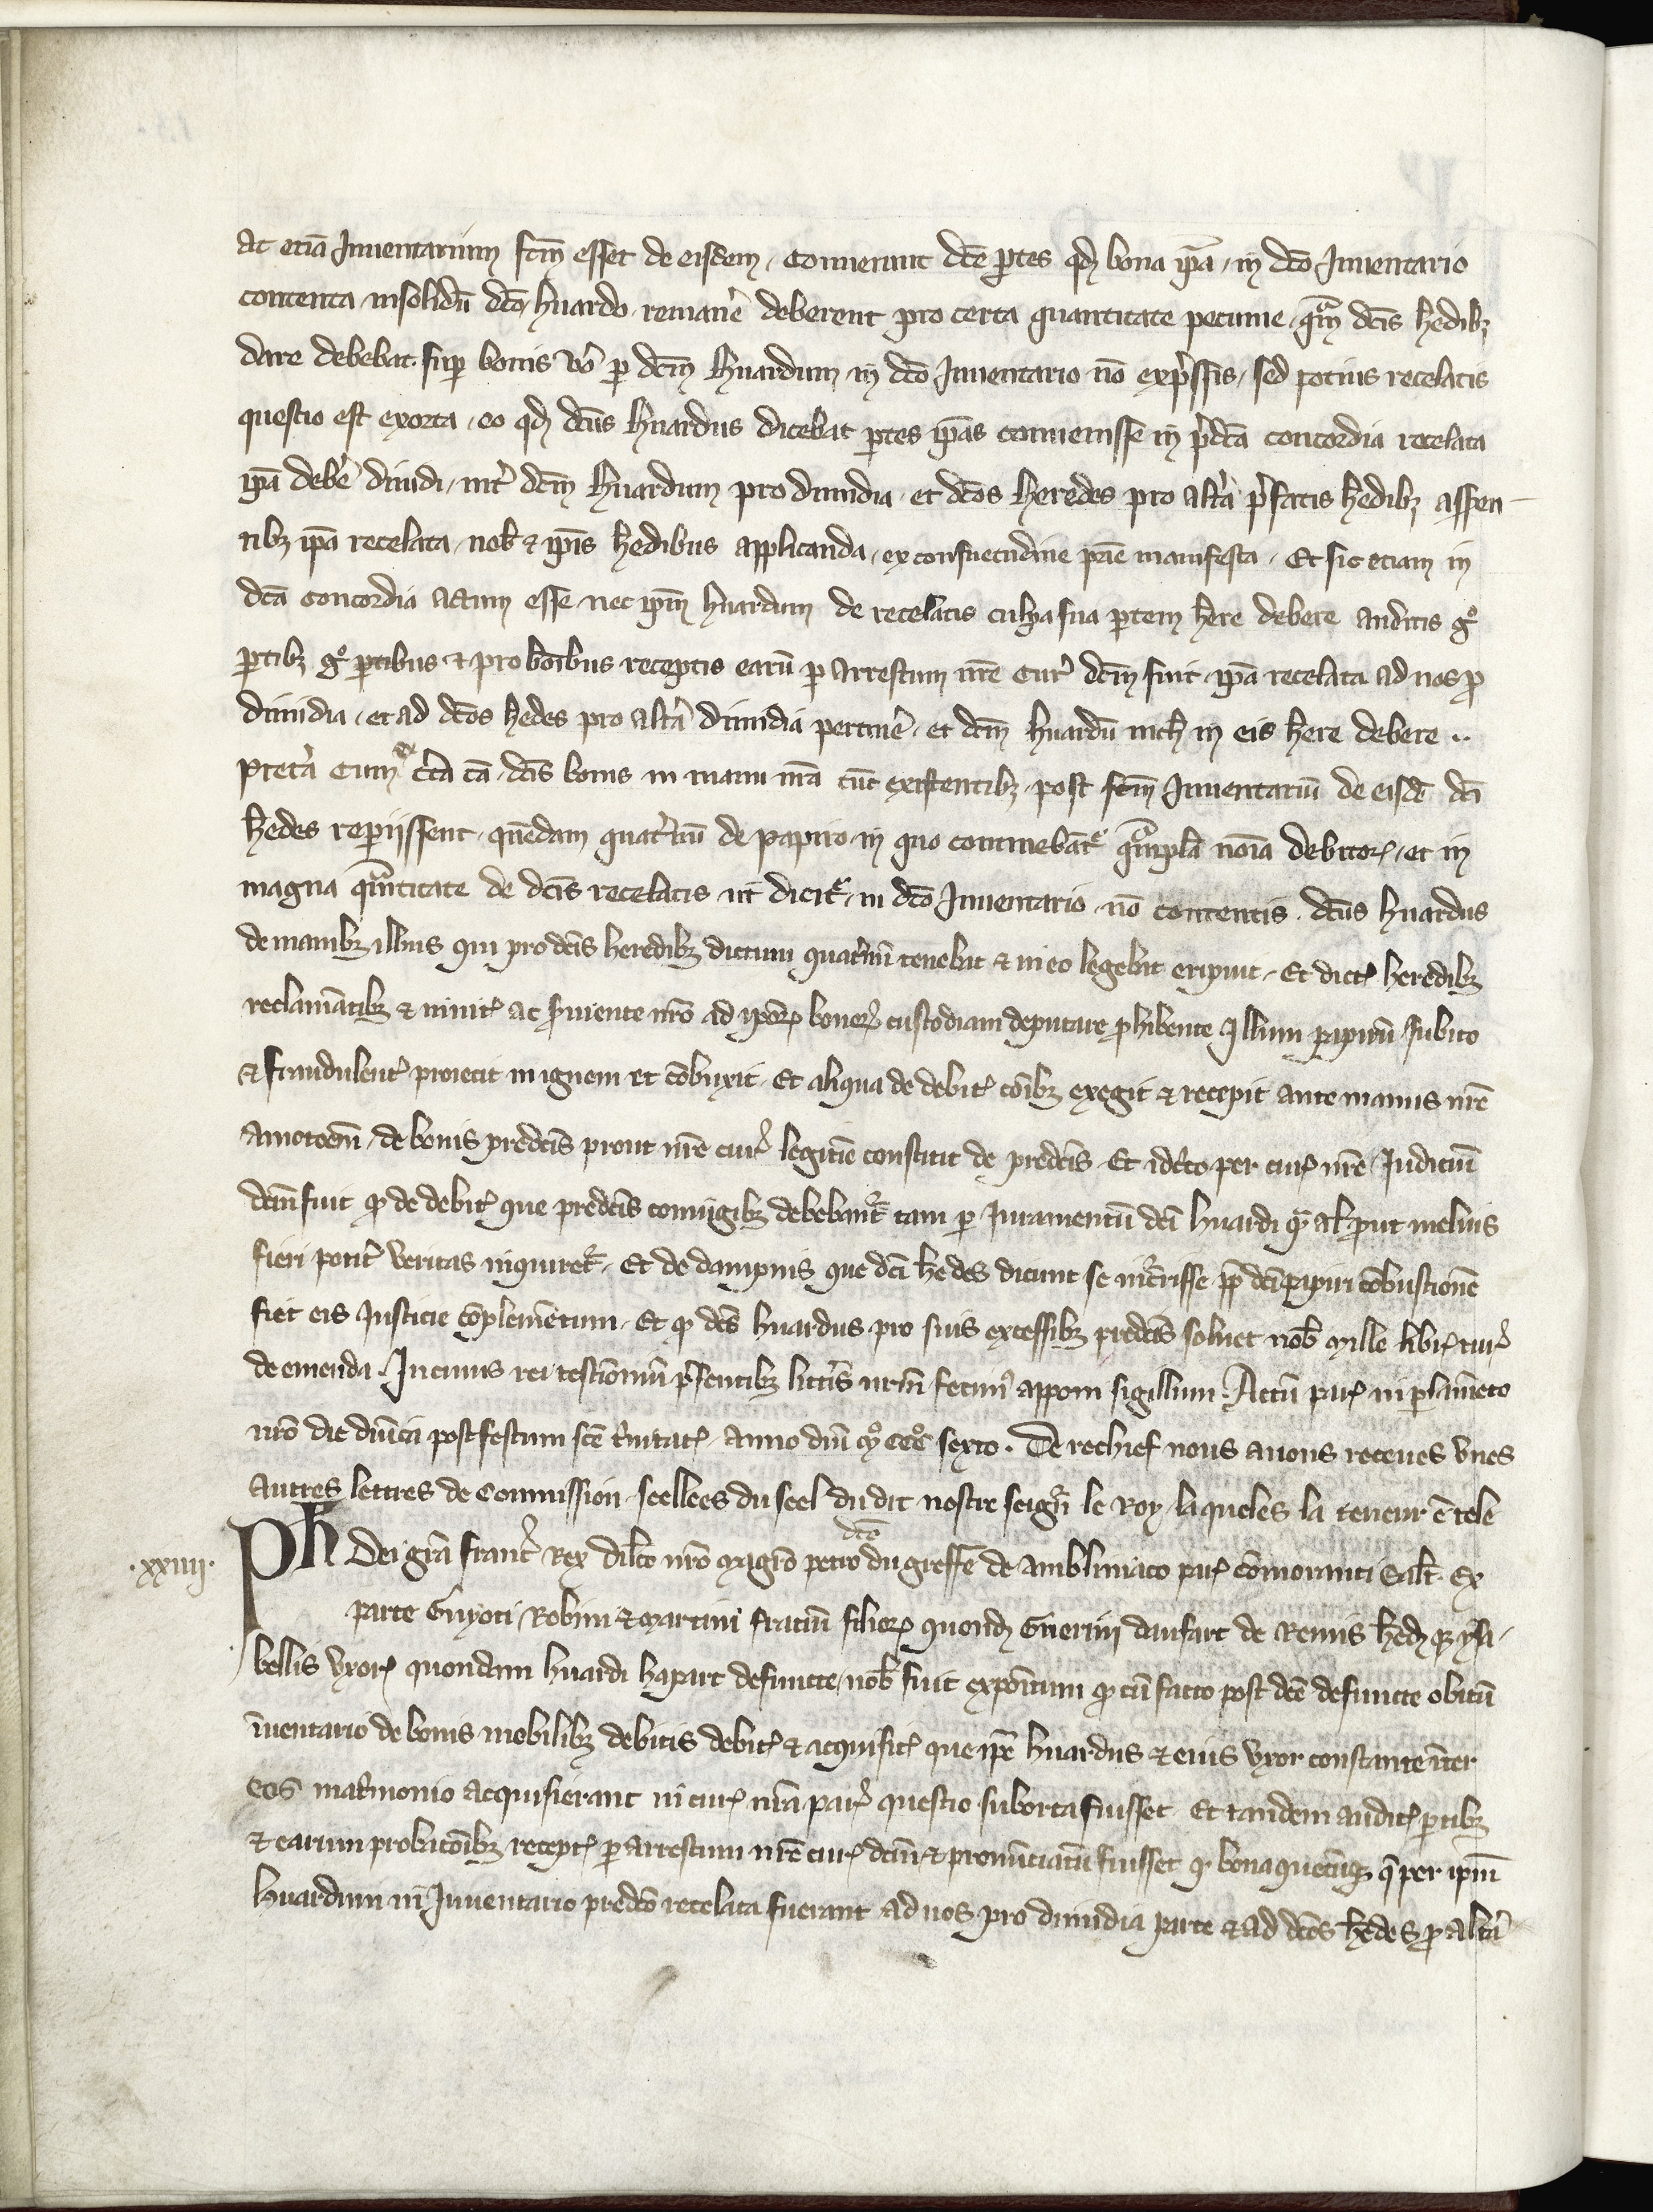 ac etiā Inuentarium fcm̄ esset de eisdem, conuenerunt dc̄e ꝑtes qđ bona ip̄a, in dc̄o Inuentario
contenta insolidū dc̄o huardo remanē deberent pro certa quantitate pecunie, qᵃm dc̄is hēdibꝫ
dare debebat. suꝑ bonis vo ꝑ dcm̄ huardum in dc̄o Inuentario nō expssis, sed potius recelatis
questio est exorta, eo qđ dcūs huardus dicebat ꝑtes ip̄as conuenisse in pdc̄a concordia recelata
ip̄a debē diuidi, int dcm̄ huardum pro dimidia, et dc̄os heredes pro altā pfatis hēdibꝫ asseren
tibꝫ ip̄a recelata, nob̄ ⁊ ip̄is hēdibus applicanda, ex consuetudine p̄rie manifesta, Et sic etiam in
dc̄a concordia actum esse nec ip̄m huardum de recelatis culpa sua ꝑtem h̄ere debere auditis gᵒ
ꝑtibꝫ gᵒ ꝑtibus ⁊ probōibus receptis earū ꝑ arrestum nr̄e Cur dcm̄ fuit, ip̄a recelata ad nos ꝓ
dimidia, et ad dc̄os hēdes pro altā dimidia pertinē, et dcm̄ huardū nich̄ in eis h̄ere debere ..
pretā cum ex c̄ta cā dc̄is bonis in manu nr̄a tūc existentibꝫ, post fcm̄ Inuentariū de eisdē dc̄i
hēdes repiissent, quēdam quat̄nū de papiro, in quo continebāt qᵃmpla noīa debitoꝝ, et in
magna qᵃntitate de dc̄is recelatis ut dicit, in dc̄o Inuentario nō contentis, dcūs huardus
de manibꝫ illius qui pro dc̄is heredibꝫ dictum quat̄nū tenebat ⁊ in eo legebat eripuit, Et dictꝭ heredibꝫ
reclamātibꝫ ⁊ inuitꝭ ac ſuiente nr̄o ad ip̄oꝝ bonoꝝ custodiam deputato ꝓhibente Illum papirū subito
⁊ fraudulent proiecit in ignem et cōbuxit, Et aliqua de debitꝭ cōibꝫ exegit ⁊ recepit ante manus nr̄e
amotōem, de bonis predc̄is prout nr̄e cur legitīe constitit de predc̄is Et idc̄co per curꝭ nr̄e Judiciū
dcm̄ fuit ꝙ de debitꝭ que predc̄is coniugibꝫ debebānt tam ꝑ Juramentū dc̄i huardi qᵃ al ꝓut melius
fieri potit veritas inquiret, Et de dampnis que dc̄i hēdes dicunt se incrisse ꝓpt dc̄i papiri cōbustionē
fiet eis Justicie cōplemētum, Et ꝙ dcūs huardus pro suis excessibꝫ predc̄is soluet nob̄ mille libꝝ tur
de emenda. In cuius rei testīoniū psentibꝫ litt̄is nr̄m fecim⁹ apponi sigillum. Actū parꝭ in parlamēto
nr̄o die dn̄ica post festum sc̄e t̄nitatꝭ, Anno dn̄i mᵒ cccᵒ sexto. De rechief nous auons receues vnes
autres lettres de Commission, seellees du seel du dit nostre seigr̄ le Roy, la queles la teneur ē tele
·xxiiij·
Ph dei gr̄a franc̄ Rex dil̄co nr̄o magrō petro dc̄o du greffe de Ambliniaco parꝭ cōmoranti Salt̄. Ex
parte Guyoti Robini ⁊ martini fratrū filioꝝ quond Guerini daufart de Remis hēd ꝙ ysa
bellis vxorꝭ quondam huardi hapart defuncte, nob̄ fuit expōitum ꝙ cū facto post dc̄e defuncte obitū
īuentario de bonis mobilibꝫ debitis debitꝭ ⁊ acquisitꝭ que ip̄e huardus ⁊ eius vxor constante īter
eos mat̄rmonio acquisierant in curꝭ nr̄a parꝭ questio suborta fuisset, Et tandem auditꝭ ꝑtibꝫ
⁊ earum probatōibꝫ receptꝭ ꝑ arrestum nr̄e curꝭ dcm̄ ⁊ pronūciatū fuisset ꝙ bona quecūqꝫ q̄ per ipm̄
huardum in Inuentario predc̄o recelata fuerant ad nos pro dimidia parte ⁊ ad dc̄os hēdes ꝓ altā